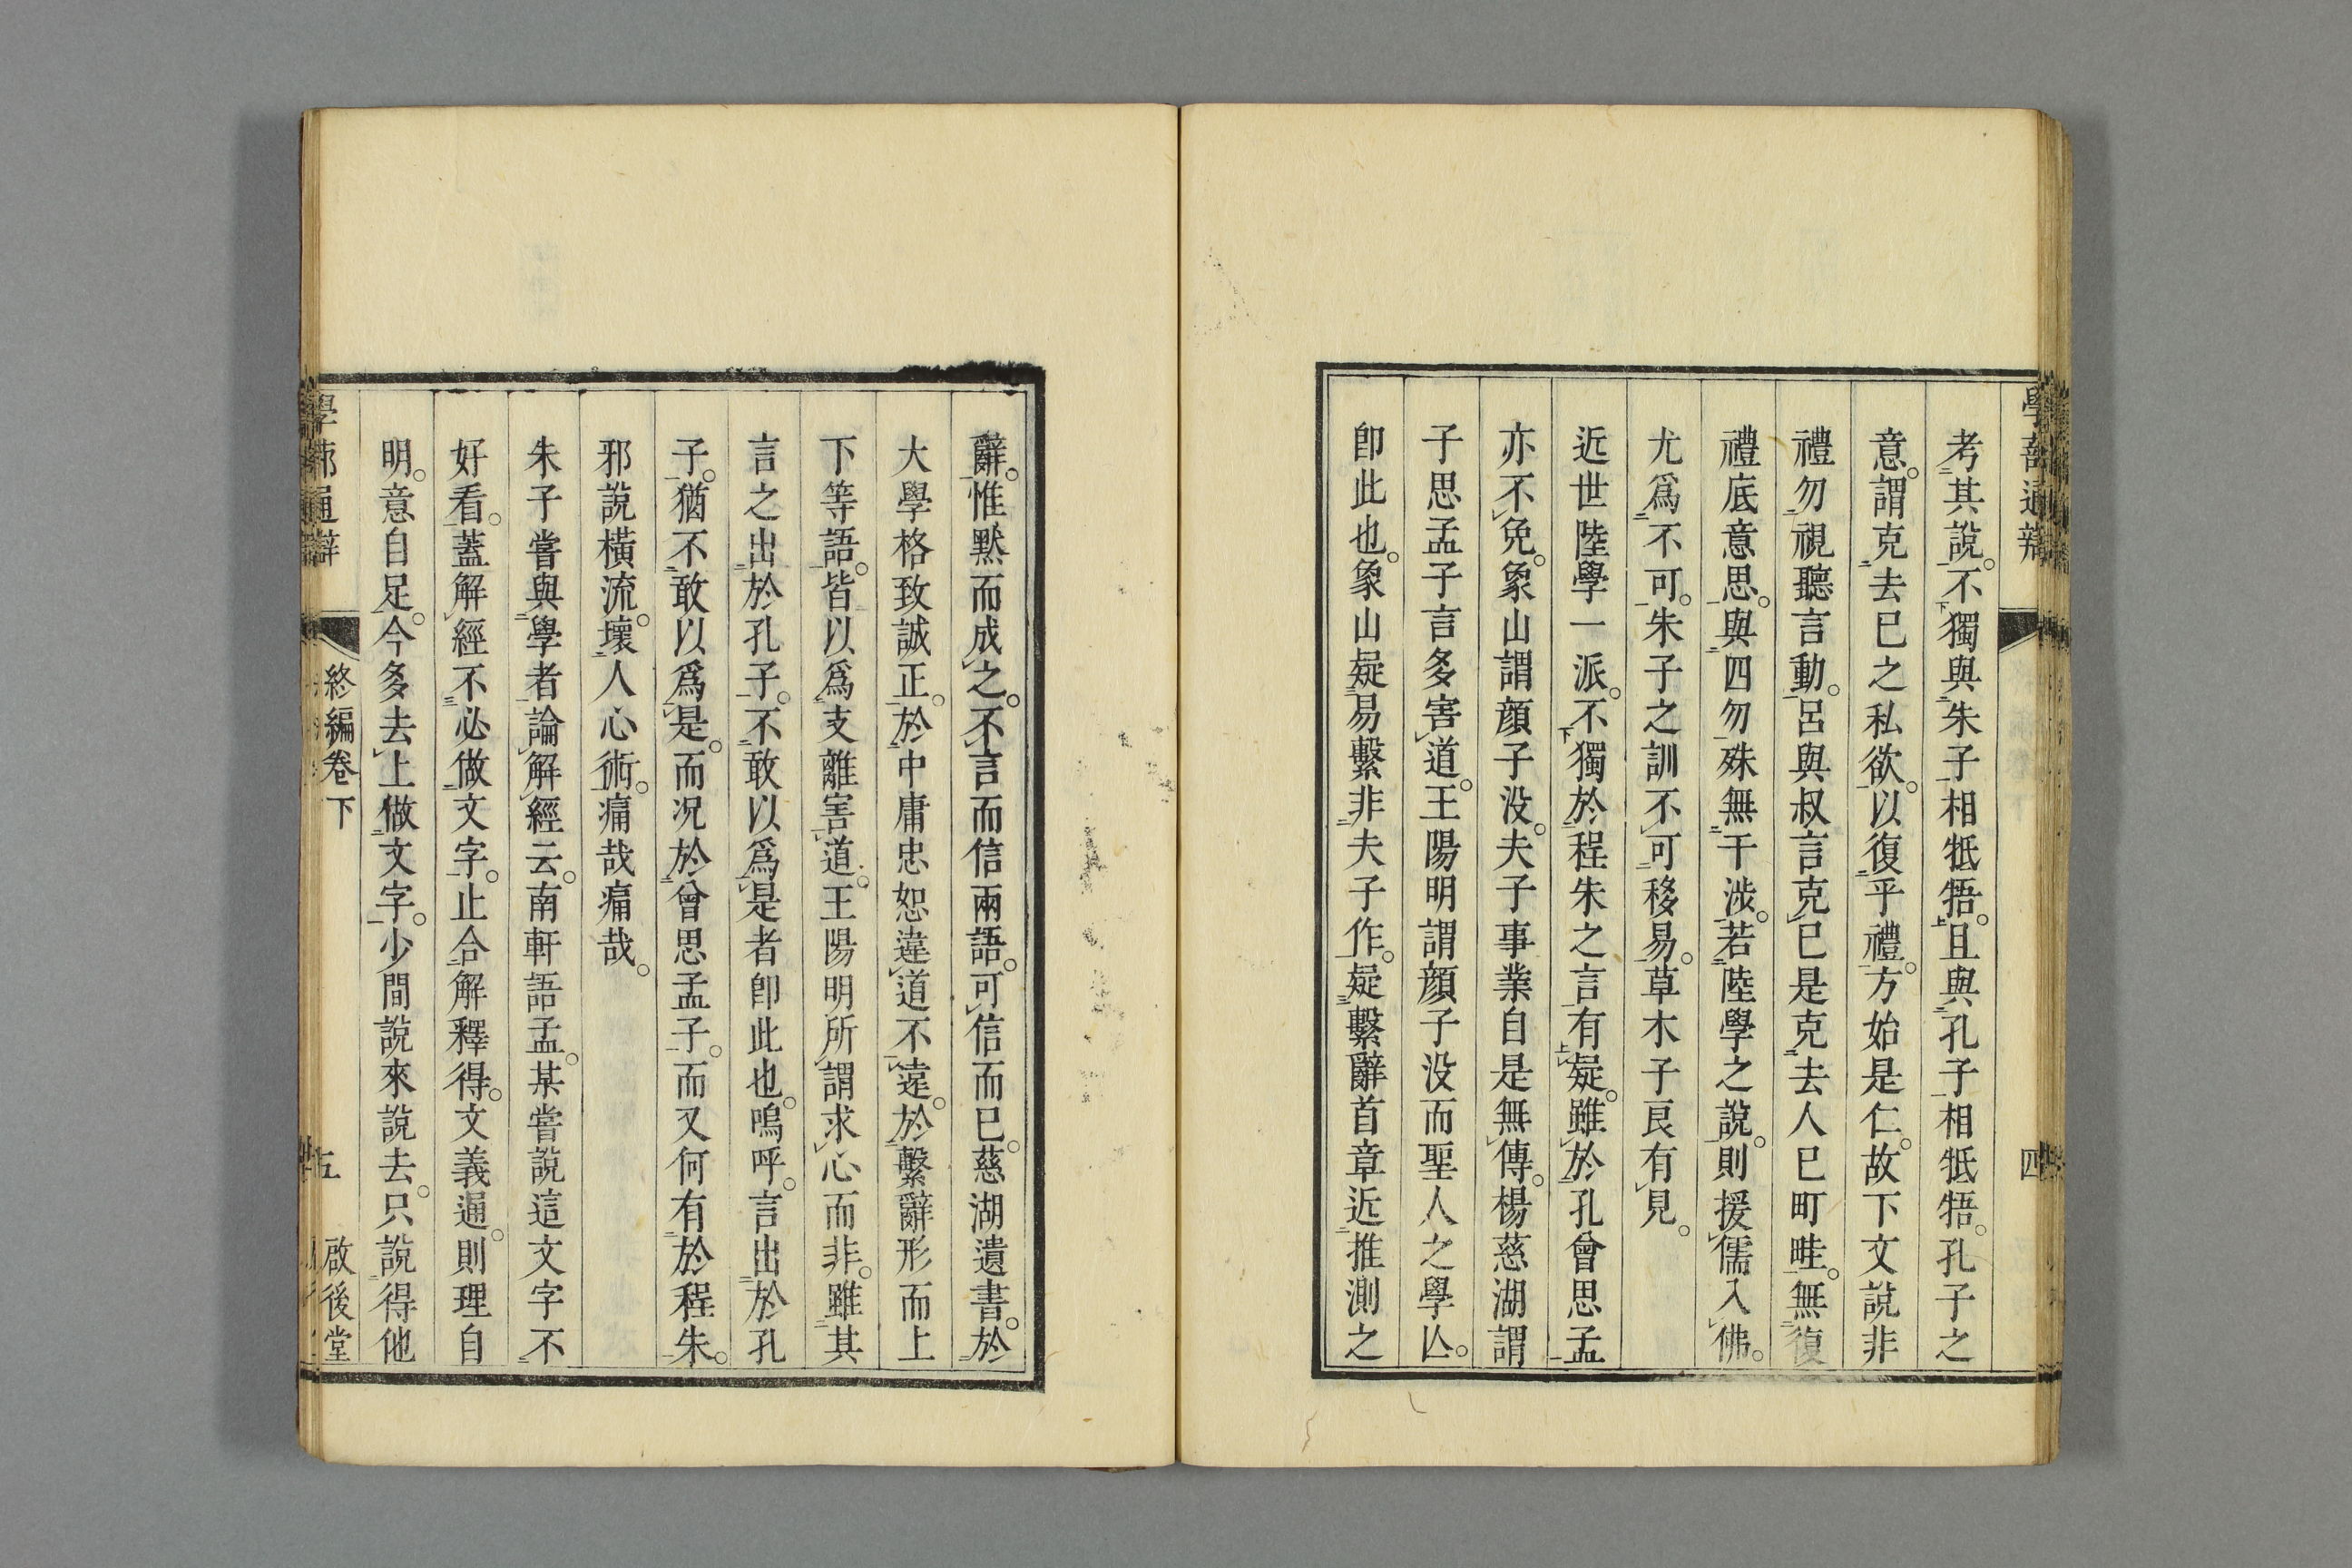 學蔀通辯
四
考其說。不獨與朱子相牴牾。且與孔子相牴牾。孔子之
意。謂克去已之私欲。以復乎禮。方始是仁。故下文說非
禮勿視聽言動。呂與叔言克已是克去人已町畦。無復
禮底意思。與四勿殊無干涉。若陸學之說。則援儒入佛。
尤爲不可。朱子之訓不可移易。草木子良有見。
近世陸學一派。不獨於程朱之言有疑。雖於孔曾思孟
亦不免。象山謂顔子没。夫子事業自是無傳。楊慈湖謂
子思孟子言多害道。王陽明謂顔子没而聖人之學亾。
卽此也。象山疑易繫非夫子作。疑繫辭首章近推測之
辭。惟黙而成之。不言而信兩語。可信而已。慈湖遺書。於
大學格致誠正。於中庸忠恕違道不遠。於繫辭形而上
下等語。皆以爲支離害道。王陽明所謂求心而非。雖其
言之出於孔子。不敢以爲是者卽此也。嗚呼。言出於孔
子。猶不敢以爲是。而况於曾思孟子。而又何有於程朱。
邪說橫流。壞人心術。痛哉痛哉。
朱子嘗與學者論解經云。南軒語孟。某嘗說這文字不
好看。蓋解經不必做文字。止合解釋得。文義通。則理自
明。意自足。今多去上做文字。少間說來說去。只說得他
學蔀通辯
終編卷下
五
啟後堂